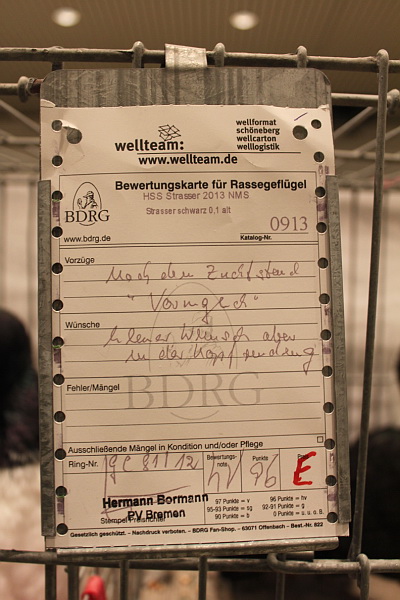 wellteam:
wellformat
schöneberg
wellcarton
welllogistik
www.wellteam.de
BDRG
www.bdrg.de
Bewertungskarte für Rassegeflügel
HSS Strasser 2013 NMS
Strasser schwarz 0,1 alt
Katalog-Nr. 0913
Vorzüge
Nach dem Zuchtstand
Wünsche
kleiner Wunsch aber
in der Kopfrundung
BDRG
Fehler/Mängel
Ausschließende Mängel in Kondition und/oder Pflege
Ring-Nr. 12
Bewertungs-
note hv
Punkte 96
E
Hermann Bormann
PV Bremen
Stempel Preisrichter
97 Punkte = v
95-93 Punkte = sg
90 Punkte = b
96 Punkte = hv
92-91 Punkte = g
0 Punkte = u. o. B.
Gesetzlich geschützt. - Nachdruck verboten. - BDRG Fan-Shop. - 63071 Offenbach - Best.-Nr. 822